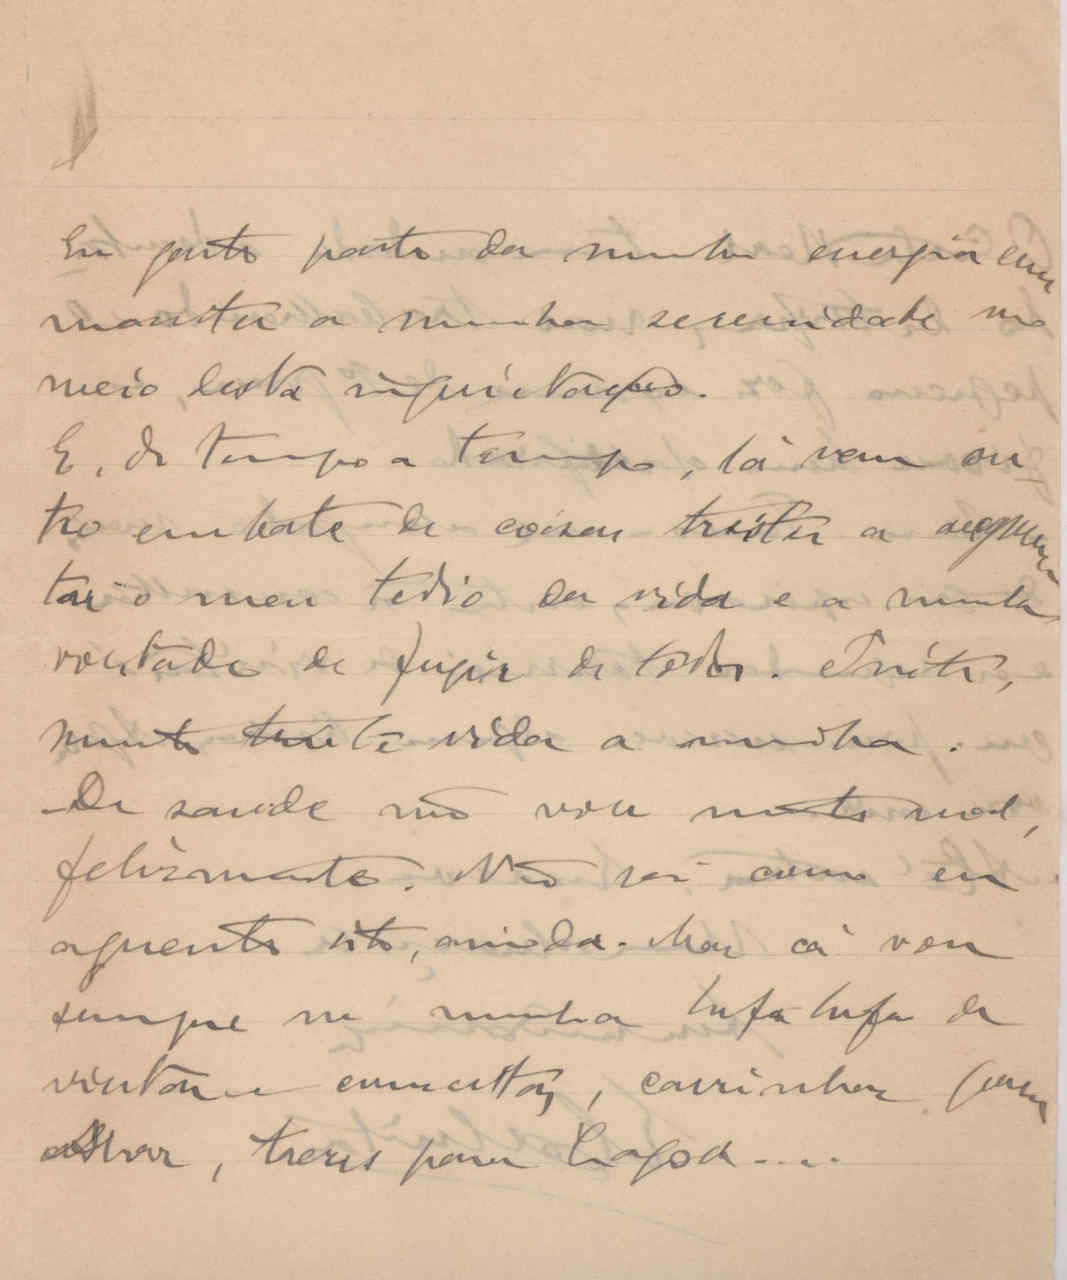 Eu gasto parte da minha energia em
manter a minha serenidade no
meio desta inquietação.
E, de tempo a tempo, lá vem ou-
tro embate de coisas tristes a augmen-
tar o meu tedio da vida e a minha
vontade de fugir de todos. Triste,
muito triste vida a minha.
De saude não vou muito mal,
felizmente. Não sei como eu
aguento isto, ainda. Mas cá vou
sempre na minha lufa-lufa de
visitas e consultas, carrinhos para
, trens para Lagoa....